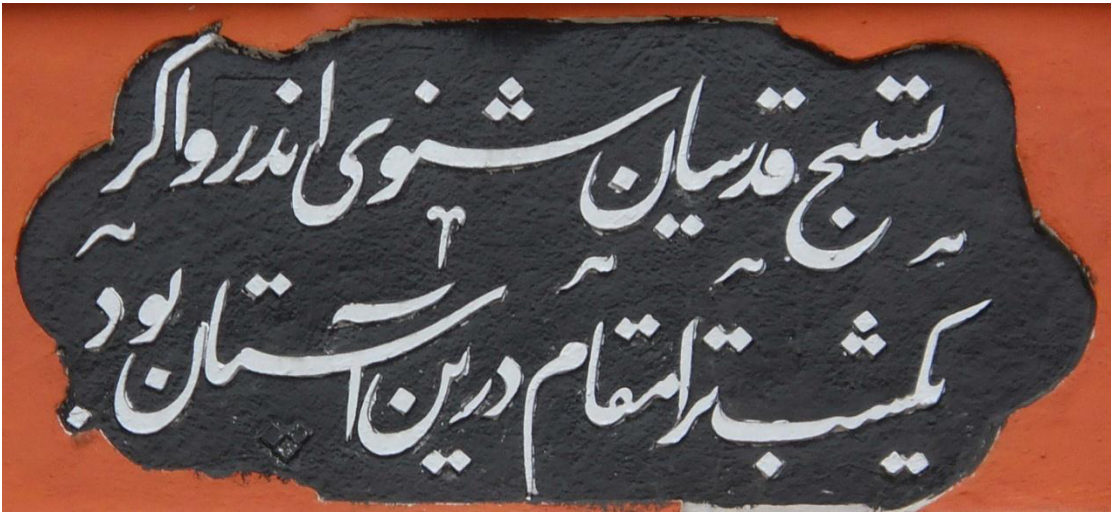 تسبیح قدسیان شنوی اندرو اگر
یکشب ترا مقام درین آستان بود